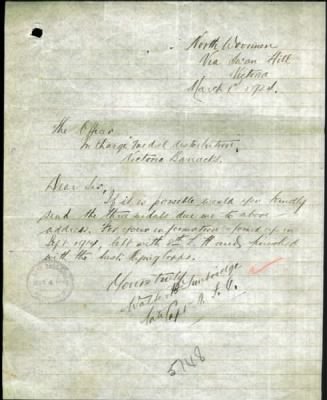 North Woorinen
Via Swan Hill
Victoria
March 1st 1924.
The Officer
In Charge Medal distribution
Victoria Barracks.
Dear Sir,
If it is possible would you kindly
send the three medals due me to above
address. For your information joined up in
Sept 1914, left with 8th L. H. and finished
with the Aust Flying Corps.
Yours truly
Walter
Late Capt A. F. C.
5748